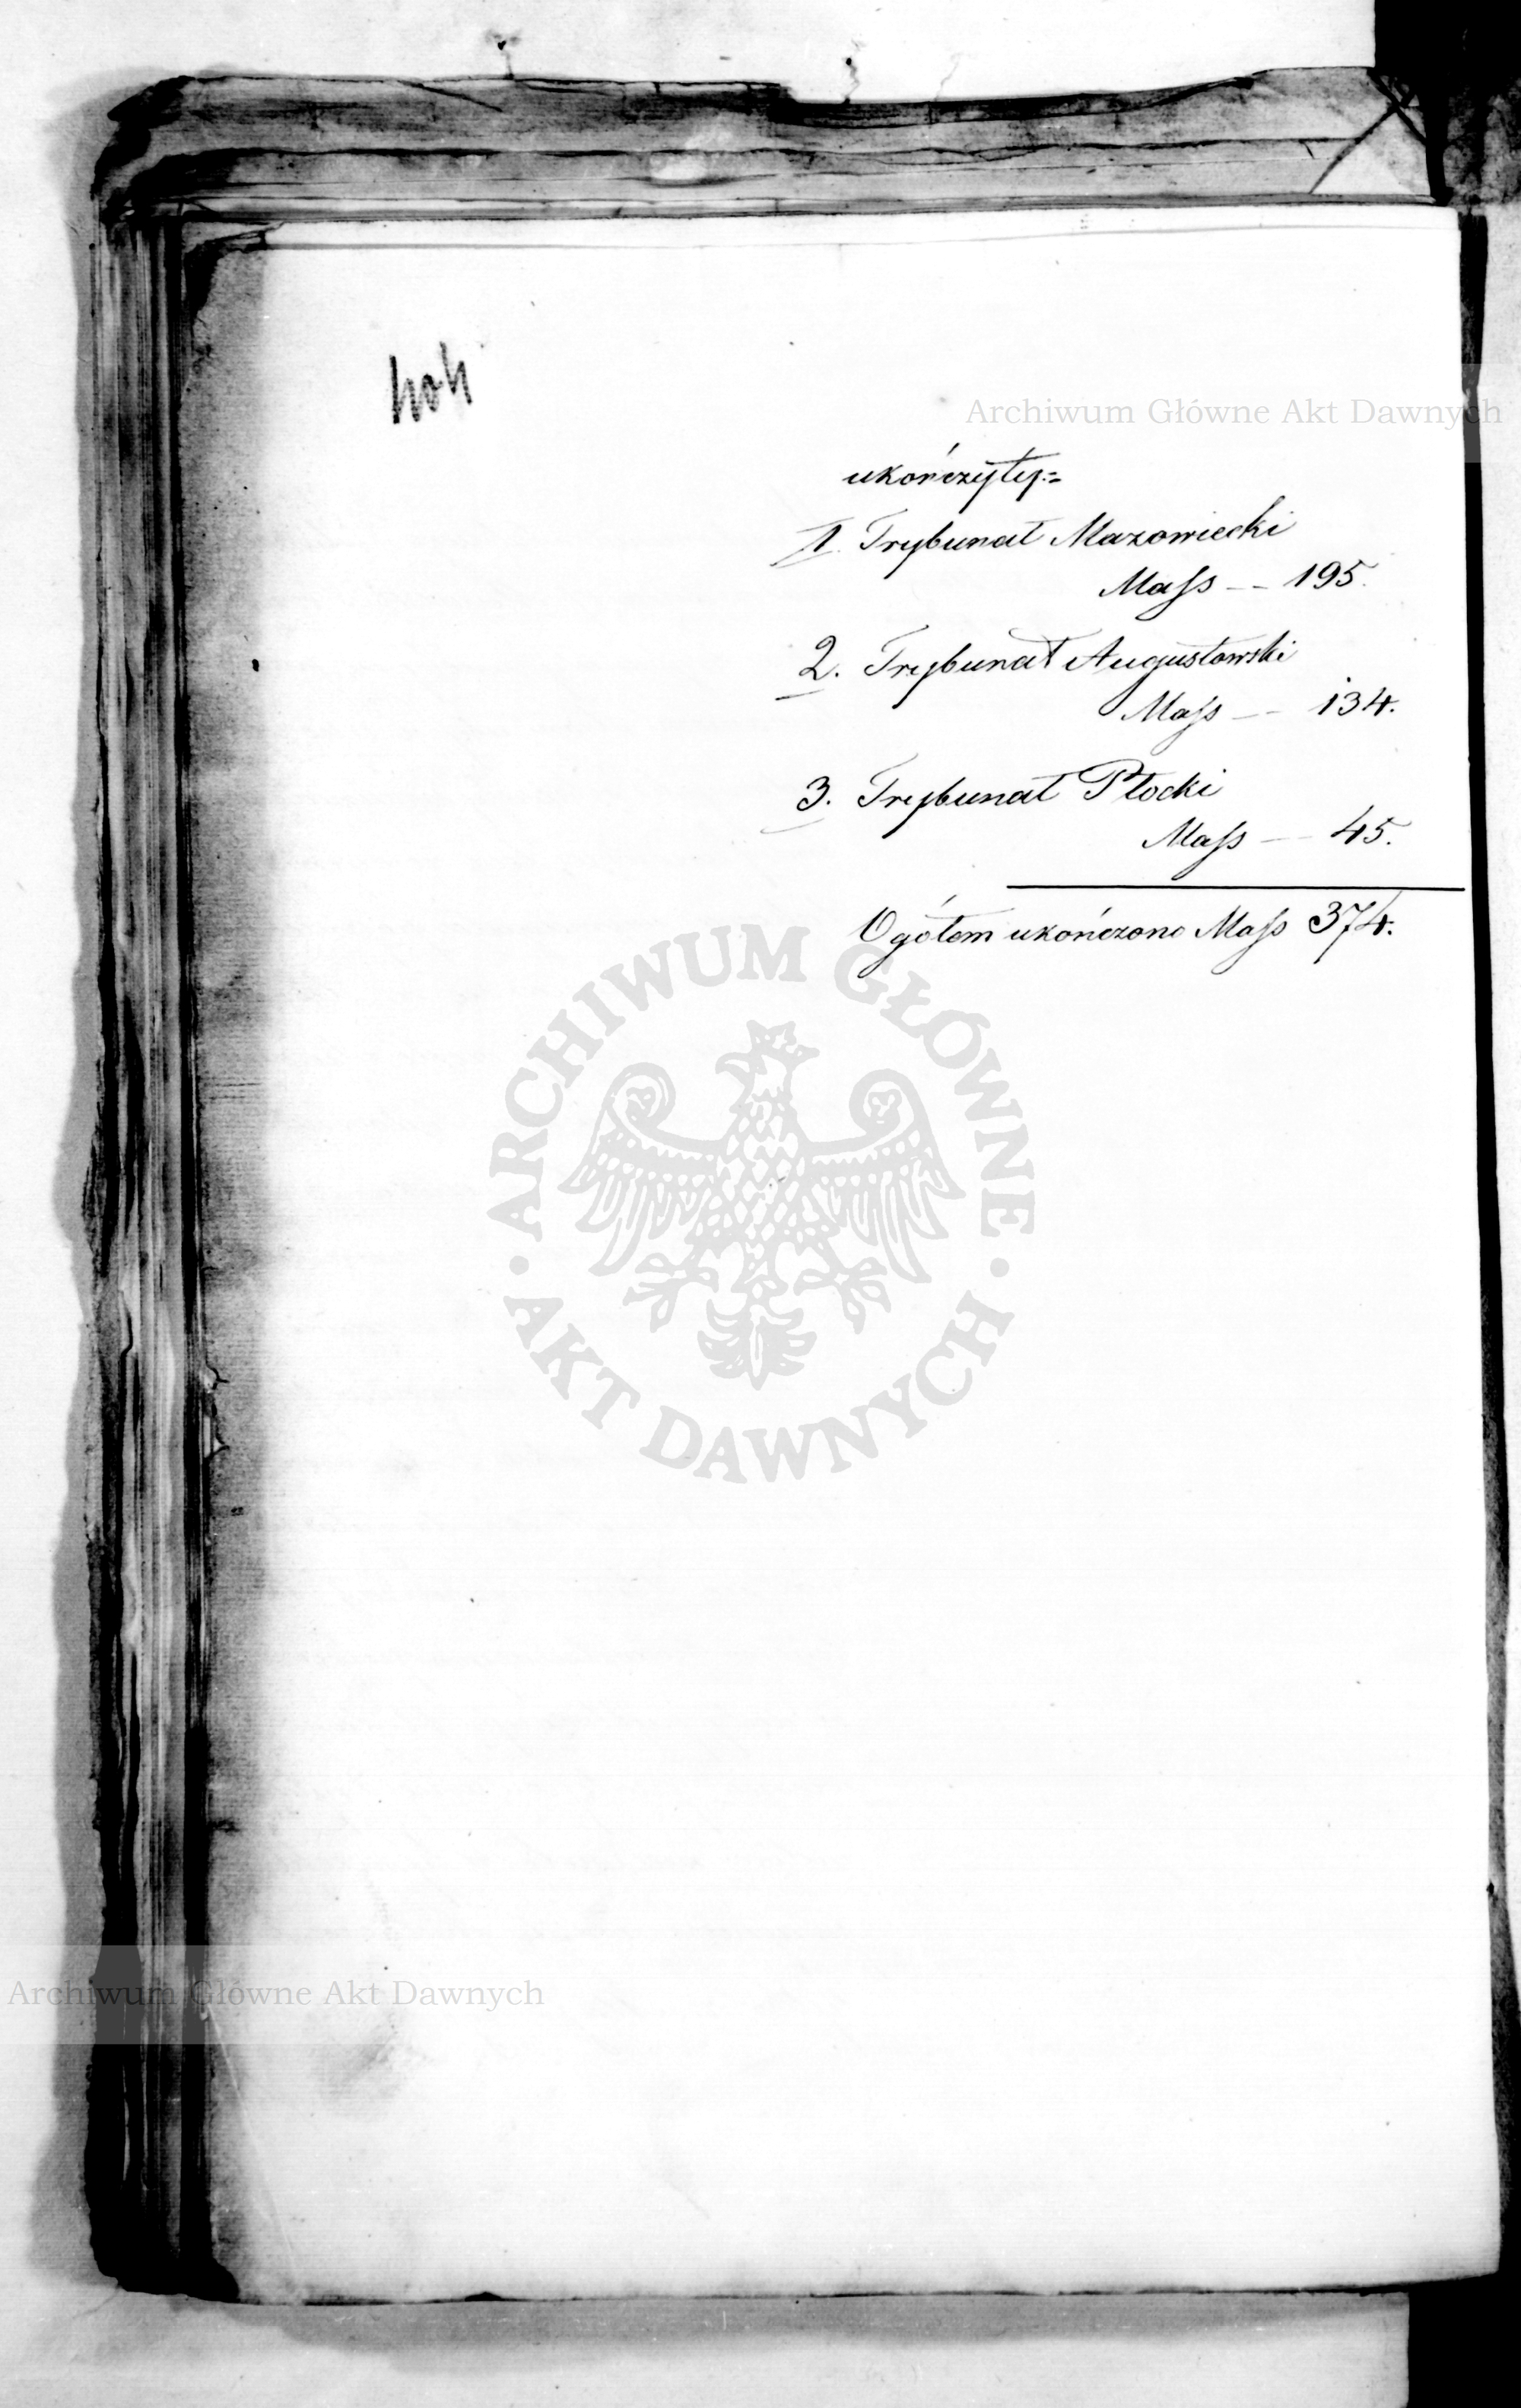 404
Archiwum Główne Akt Dawnych
ukończyły:=
1. Trybunał Mazowiecki
Mass -- 195.
2. Trybunał Augustowski
Mass -- 134.
3. Trybunał Płocki
Mass -- 45.
Ogółem ukończono Mass 374.
ARCHIWUM GŁÓWNE · AKT DAWNYCH ·
Archiwum Główne Akt Dawnych